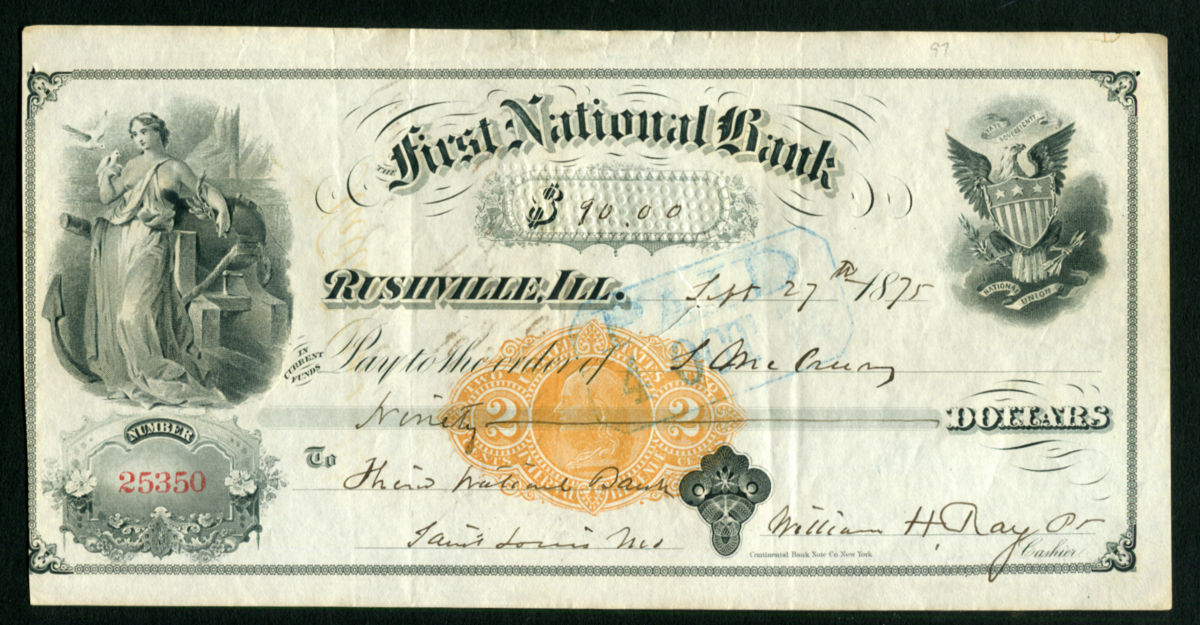 97
THE First National Bank
$ 90.00
STATE SOVEREIGNTY
RUSHVILLE, ILL. Sept 27th 1875
NATIONAL UNION
PAID
IN CURRENT FUNDS
Pay to the order of
Ninety DOLLARS
2 2
NUMBER
25350
To Third National Bank
Saint Louis Mo
William H. Ray Pr
Cashier
Continental Bank Note Co New York